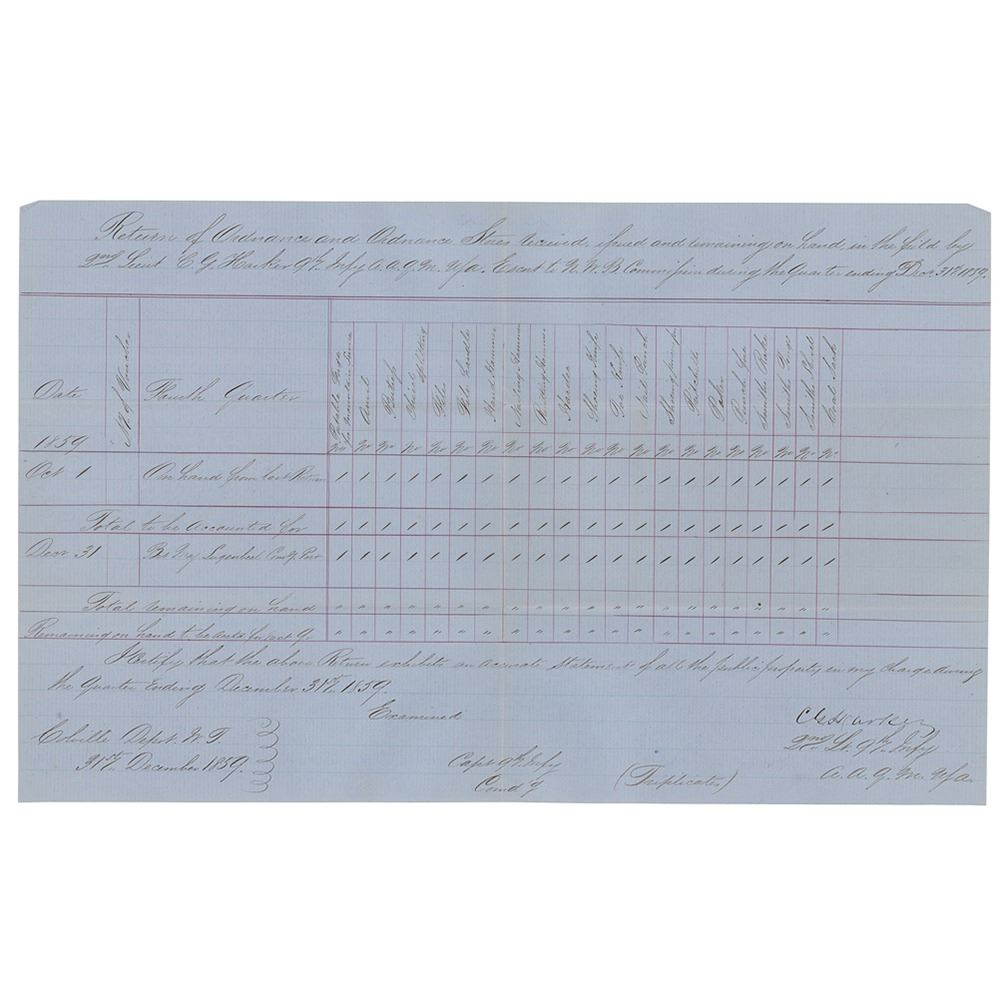 Return of Ordnance and Ordnance Stores received, issued and remaining on hand, in the field by
2nd Lieut C. G. Harker 9th Infy A.A.Q.M. &c. Escort to N.W.B. Commission during the Quarter ending Decr 31st 1859.
Date
No of Voucher
Fourth Quarter
1859
Portable Forge for mountain service
Anvil
Chisel
File
File Handle
Hand Hammer
Riding Hammer
Hardie
Shoeing Knife
Toe Knife
Nail Punch
Shoeing Pincers
Pritchell
Poker
Smiths Rake
Smiths Tongs
Smiths Shovel
Coal Sack
No No No No No No No No No No No No No No No No No No No No No
Oct 1 On hand from last Return 1 1 1 1 1 1 1 1 1 1 1 1 1 1 1 1 1 1 1 1 1
Total to be accounted for 1 1 1 1 1 1 1 1 1 1 1 1 1 1 1 1 1 1 1 1 1
Decr 31 Lugenbeel Comdg Post 1 1 1 1 1 1 1 1 1 1 1 1 1 1 1 1 1 1 1 1 1
Total remaining on hand " " " " " " " " " " " " " " " " " " " " "
Remaining on hand to be " " " " " " " " " " " " " " " " " " " " "
I certify that the above Return exhibits an accurate statement of all the public property in my charge during
the Quarter Ending December 31st 1859.
Examined
C G Harker
Colville Depot. W. T.
2nd Lt. 9th Infy
31st December 1859.
Capt 9th Infy
(Triplicates)
A. A. Q. M. &c.
Comdg